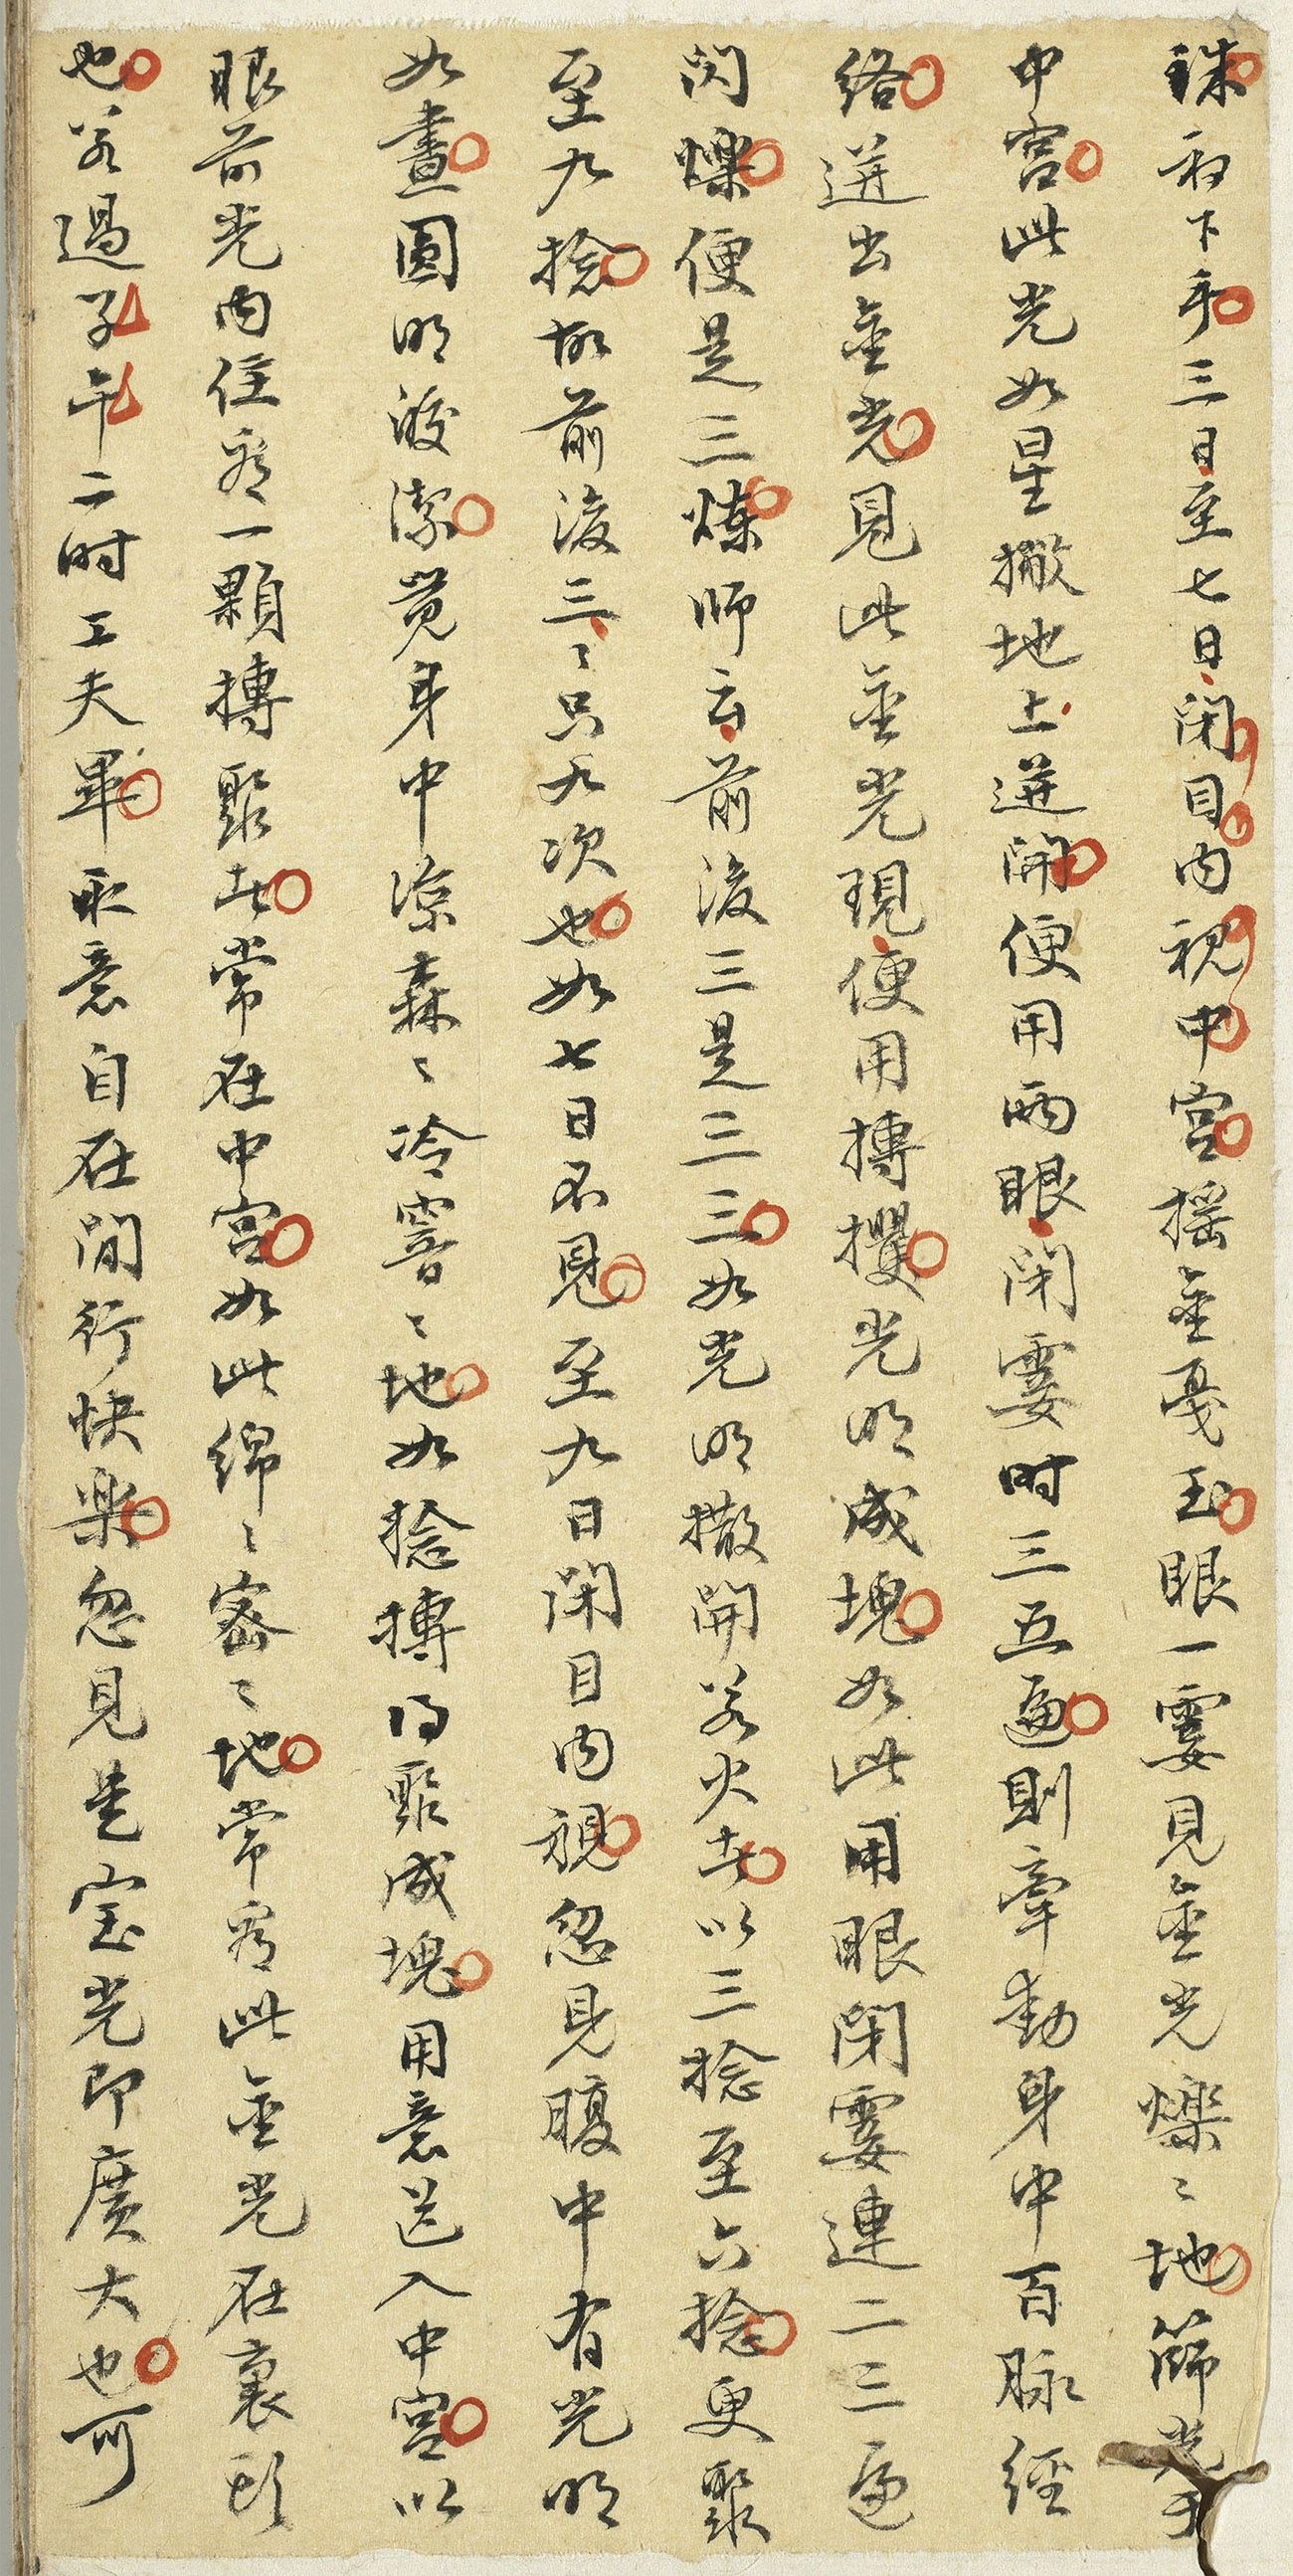 銖初下手三日至七日閉目内視中宮搖金戞玉眼一霎見金光爍〻地篩光于
中宮此光如星撒地上迸開便用两眼閉霎时三五遍則牽動身中百脉經
絡迸出金光見此金光現便用摶攫光明成塊如此用眼閉霎連二三遍
閃爍便是三煉师云前後三是三三如光明撒開若火去以三捻至六捻更聚
至九捻故前後三〻只九次也如七日不見至九日閉目内視忽見腹中有光明
如晝圓明皎潔覺身中凉森〻冷霅〻地如捻摶得聚成塊用意送入中宮以
眼前光内住看一顆摶聚此常在中宮如此綿〻密〻地常看此金光在裏頭
也若過子午二时工夫畢取意自在閒行快樂忽見是宝光即廣大也可